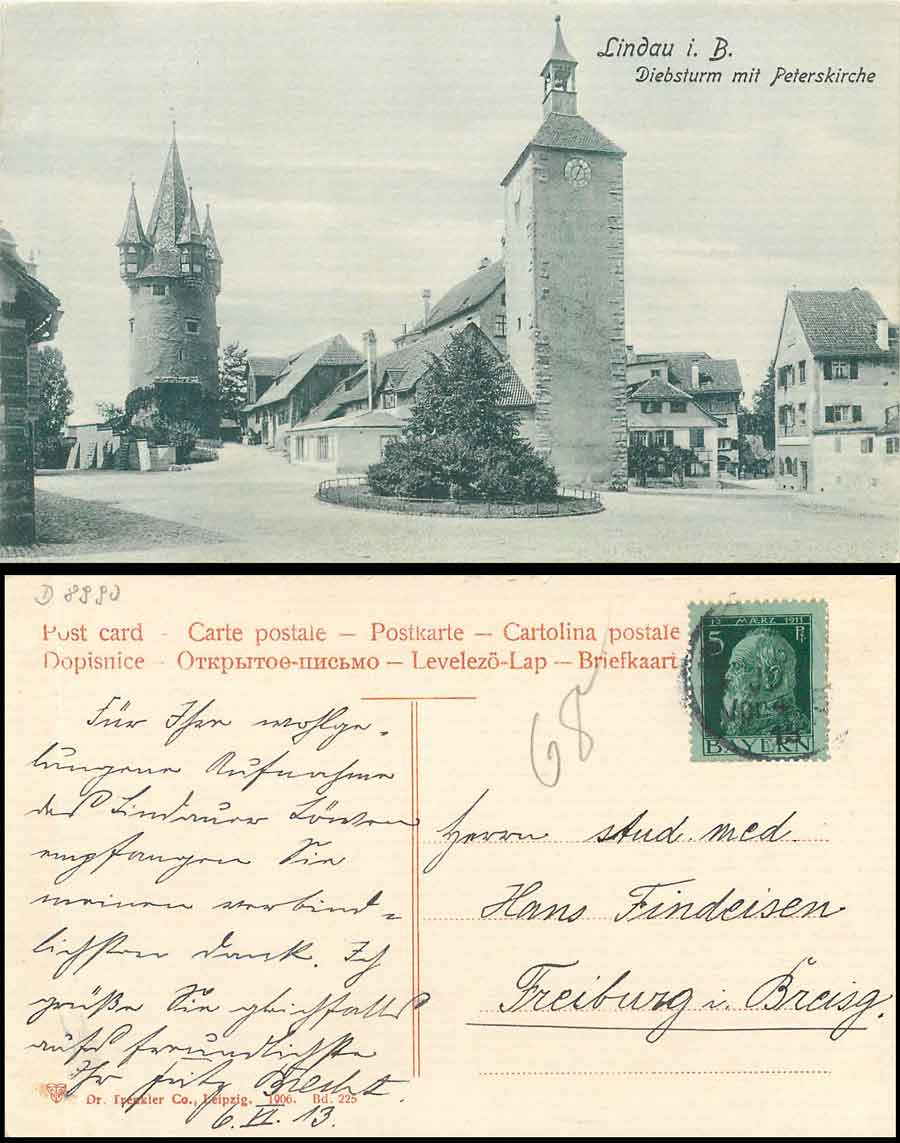 Lindau i. B.
Diebsturm mit Peterskirche
D 8990
Post card - Carte postale – Postkarte – Cartolina postale
Dopisnice - Открытое-письмо – Levelező-Lap – Briefkaart
12 MÆRZ 1911
5 Pf
BAYERN
68
Für Ihre wohlge-
lungene Aufnahme
des Lindauer Löwen
empfangen Sie
meinen verbind-
lichsten Dank. Ich
grüße Sie gleichfalls
aufs freundlichste
Ihr Fritz
6. VI. 13.
Herrn stud. med.
Hans Findeisen
Freiburg i. Breisg.
Dr. Trenkler Co., Leipzig. 1906. Bd. 225